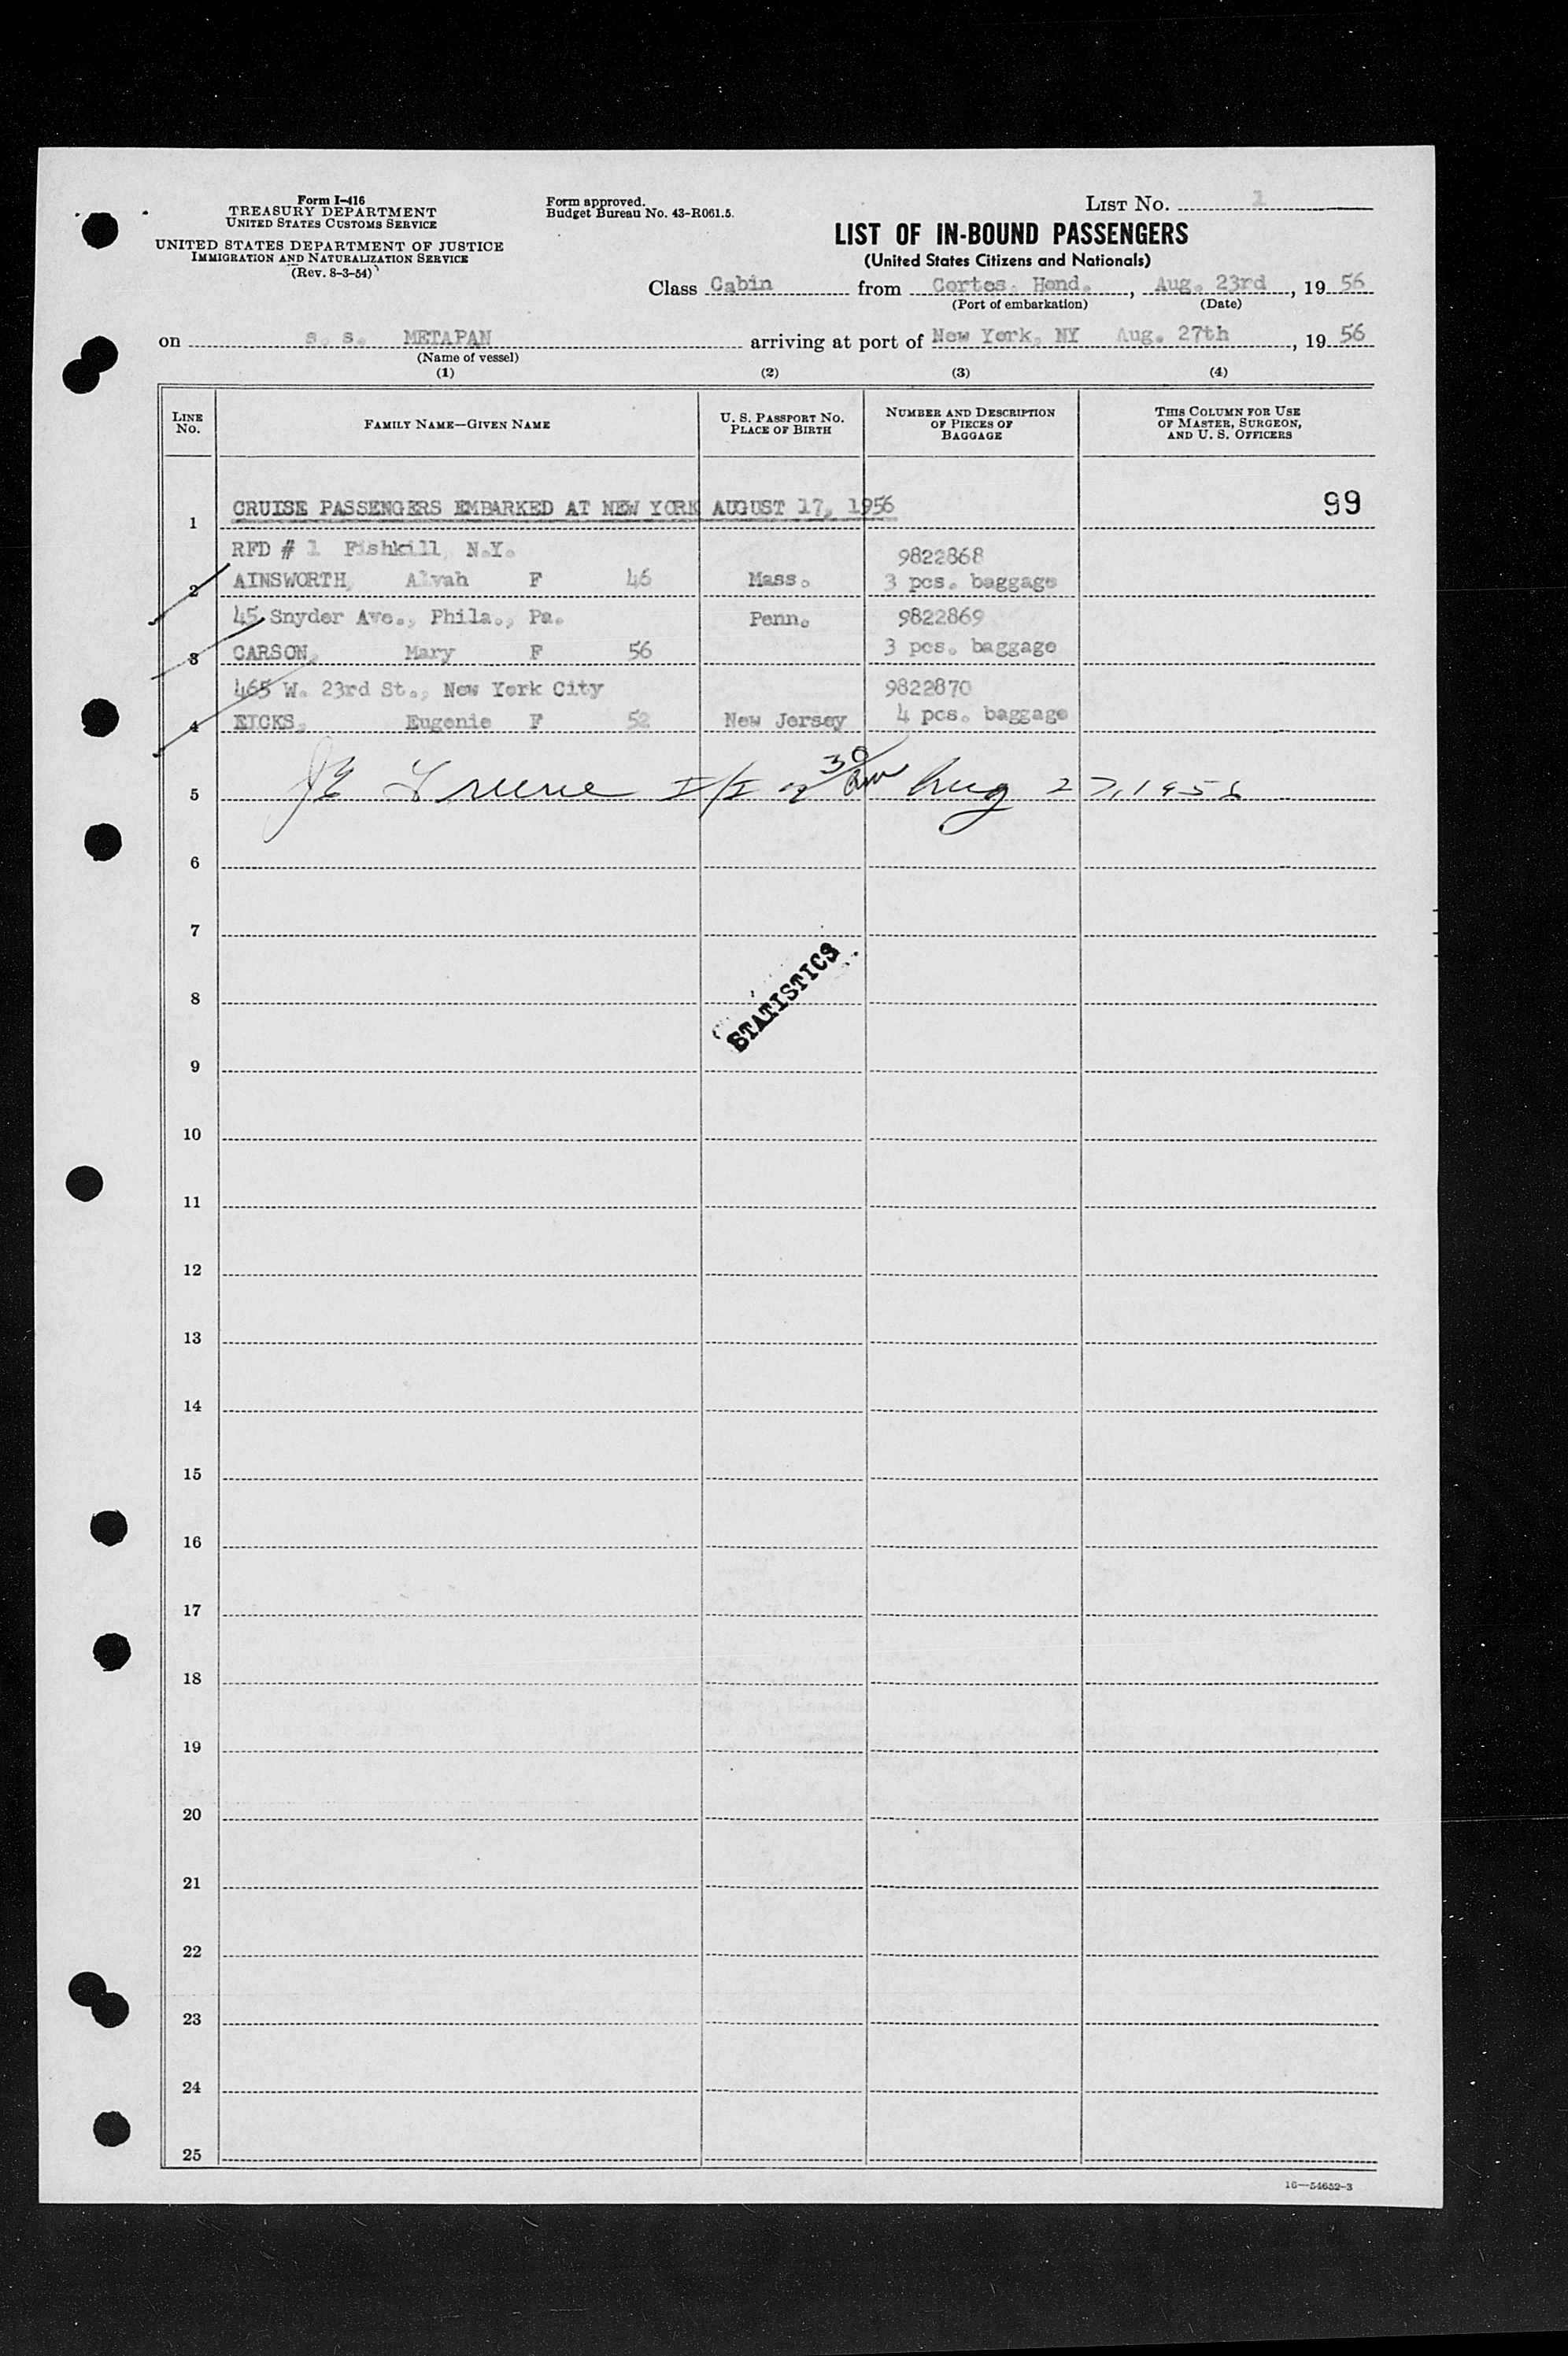 Form I-416
TREASURY DEPARTMENT
UNITED STATES CUSTOMS SERVICE
UNITED STATES DEPARTMENT OF JUSTICE
IMMIGRATION AND NATURALIZATION SERVICE
(Rev. 8-3-54)
Form approved.
Budget Bureau No. 43-R061.5.
LIST NO. 1
LIST OF IN-BOUND PASSENGERS
(United States Citizens and Nationals)
Class Cabin from Cortes. Hond. , Aug. 23rd , 19 56
(Port of embarkation) (Date)
on s. s. METAPAN arriving at port of New York, NY Aug. 27th , 19 56
(Name of vessel)
(1) (2) (3) (4)
LINE NO. FAMILY NAME—GIVEN NAME U. S. PASSPORT NO. PLACE OF BIRTH NUMBER AND DESCRIPTION OF PIECES OF BAGGAGE THIS COLUMN FOR USE OF MASTER, SURGEON, AND U. S. OFFICERS
99
1 CRUISE PASSENGERS EMBARKED AT NEW YORK AUGUST 17, 1956
RFD # 1 Fishkill, N.Y. 9822868
2 AINSWORTH, Alvah F 46 Mass. 3 pcs. baggage
45 Snyder Ave., Phila., Pa. Penn. 9822869
3 CARSON, Mary F 56 3 pcs. baggage
465 W. 23rd St., New York City 9822870
4 EICKS, Eugenie F 52 New Jersey 4 pcs. baggage
5 Greene I/I 30 Aug 27, 1956
6
7
STATISTICS
8
9
10
11
12
13
14
15
16
17
18
19
20
21
22
23
24
25
16—54652-3